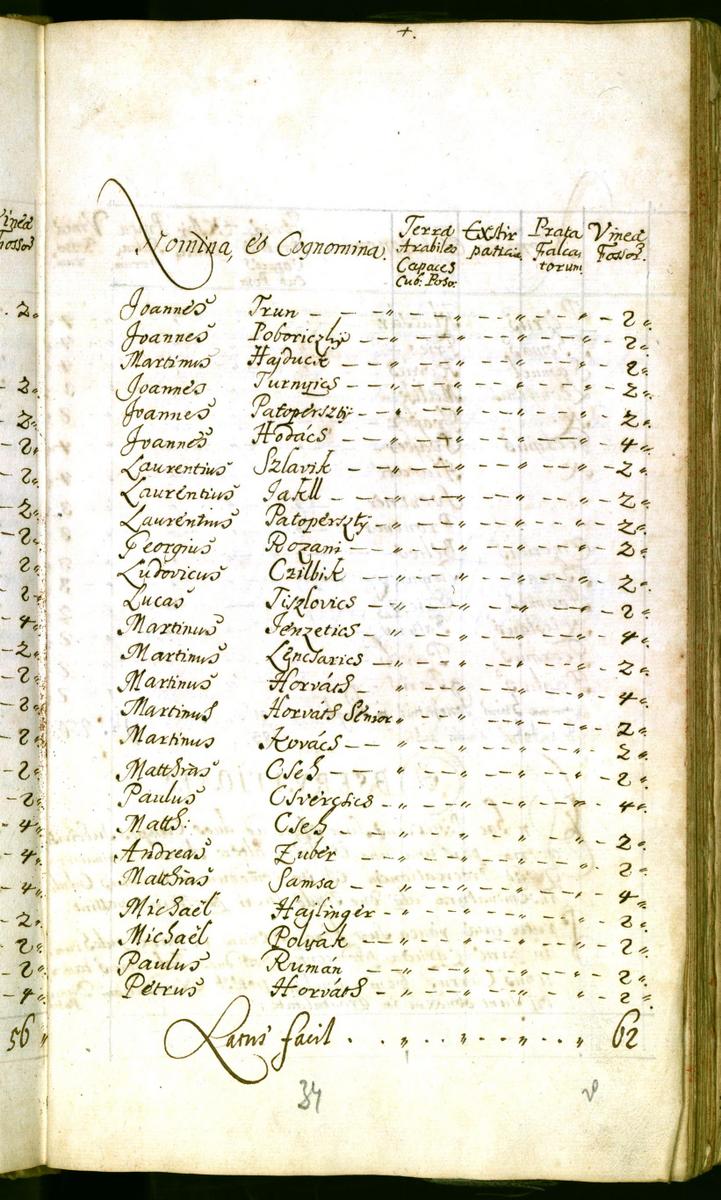 +.
Vineæ
Fossor.
Nomina, et Cognomina.
Terræ Arabiles Capaces Cub. Poson.
Extirpatitiæ
Prata Falcatorum
Vineæ Fossor.
Joannes Trun — — „ — — „ — — „ — — „ — 2 „
Joannes Poboriczky — „ — — „ — — „ — — „ — 2 „
Martinus Hajduck — — „ — — „ — — „ — — „ — 2 „
Joannes Turnyics — — „ — — „ — — „ — — „ — 2 „
Joannes Patoperszky — „ — — „ — — „ — — „ — 2 „
Joannes Hodács — — „ — — „ — — „ — — „ — 4 „
Laurentius Szlavik — — „ — — „ — — „ — — „ — 2 „
Laurentius Jakll — — „ — — „ — — „ — — „ — 2 „
Laurentius Patoperszky — „ — — „ — — „ — — „ — 2 „
Georgius Rozani — — „ — — „ — — „ — — „ — 2 „
Ludovicus Czilbik — — „ — — „ — — „ — — „ — 2 „
Lucas Tiszlovics — „ — — „ — — „ — — „ — 2 „
Martinus Jenzetics — „ — — „ — — „ — — „ — 4 „
Martinus Lencsarics — „ — — „ — — „ — — „ — 2 „
Martinus Horváth — „ — — „ — — „ — — „ — 4 „
Martinus Horváth Senior „ — — „ — — „ — — „ — 2 „
Martinus Kovács — — „ — — „ — — „ — — „ — 2 „
Matthias Cseh — — „ — — „ — — „ — — „ — 2 „
Paulus Csvercsics — „ — — „ — — „ — — „ — 4 „
Matth: Cseh — — „ — — „ — — „ — — „ — 2 „
Andreas Zuber — — „ — — „ — — „ — — „ — 2 „
Matthias Samsa — — „ — — „ — — „ — — „ — 4 „
Michaël Hajlinger — „ — — „ — — „ — — „ — 2 „
Michaël Polyák — — „ — — „ — — „ — — „ — 2 „
Paulus Rumán — — „ — — „ — — „ — — „ — 2 „
Petrus Horváth — — „ — — „ — — „ — — „ — 2 „
Latus facit . . . „ . . . „ . . . „ . . . „ 62
56 „
34